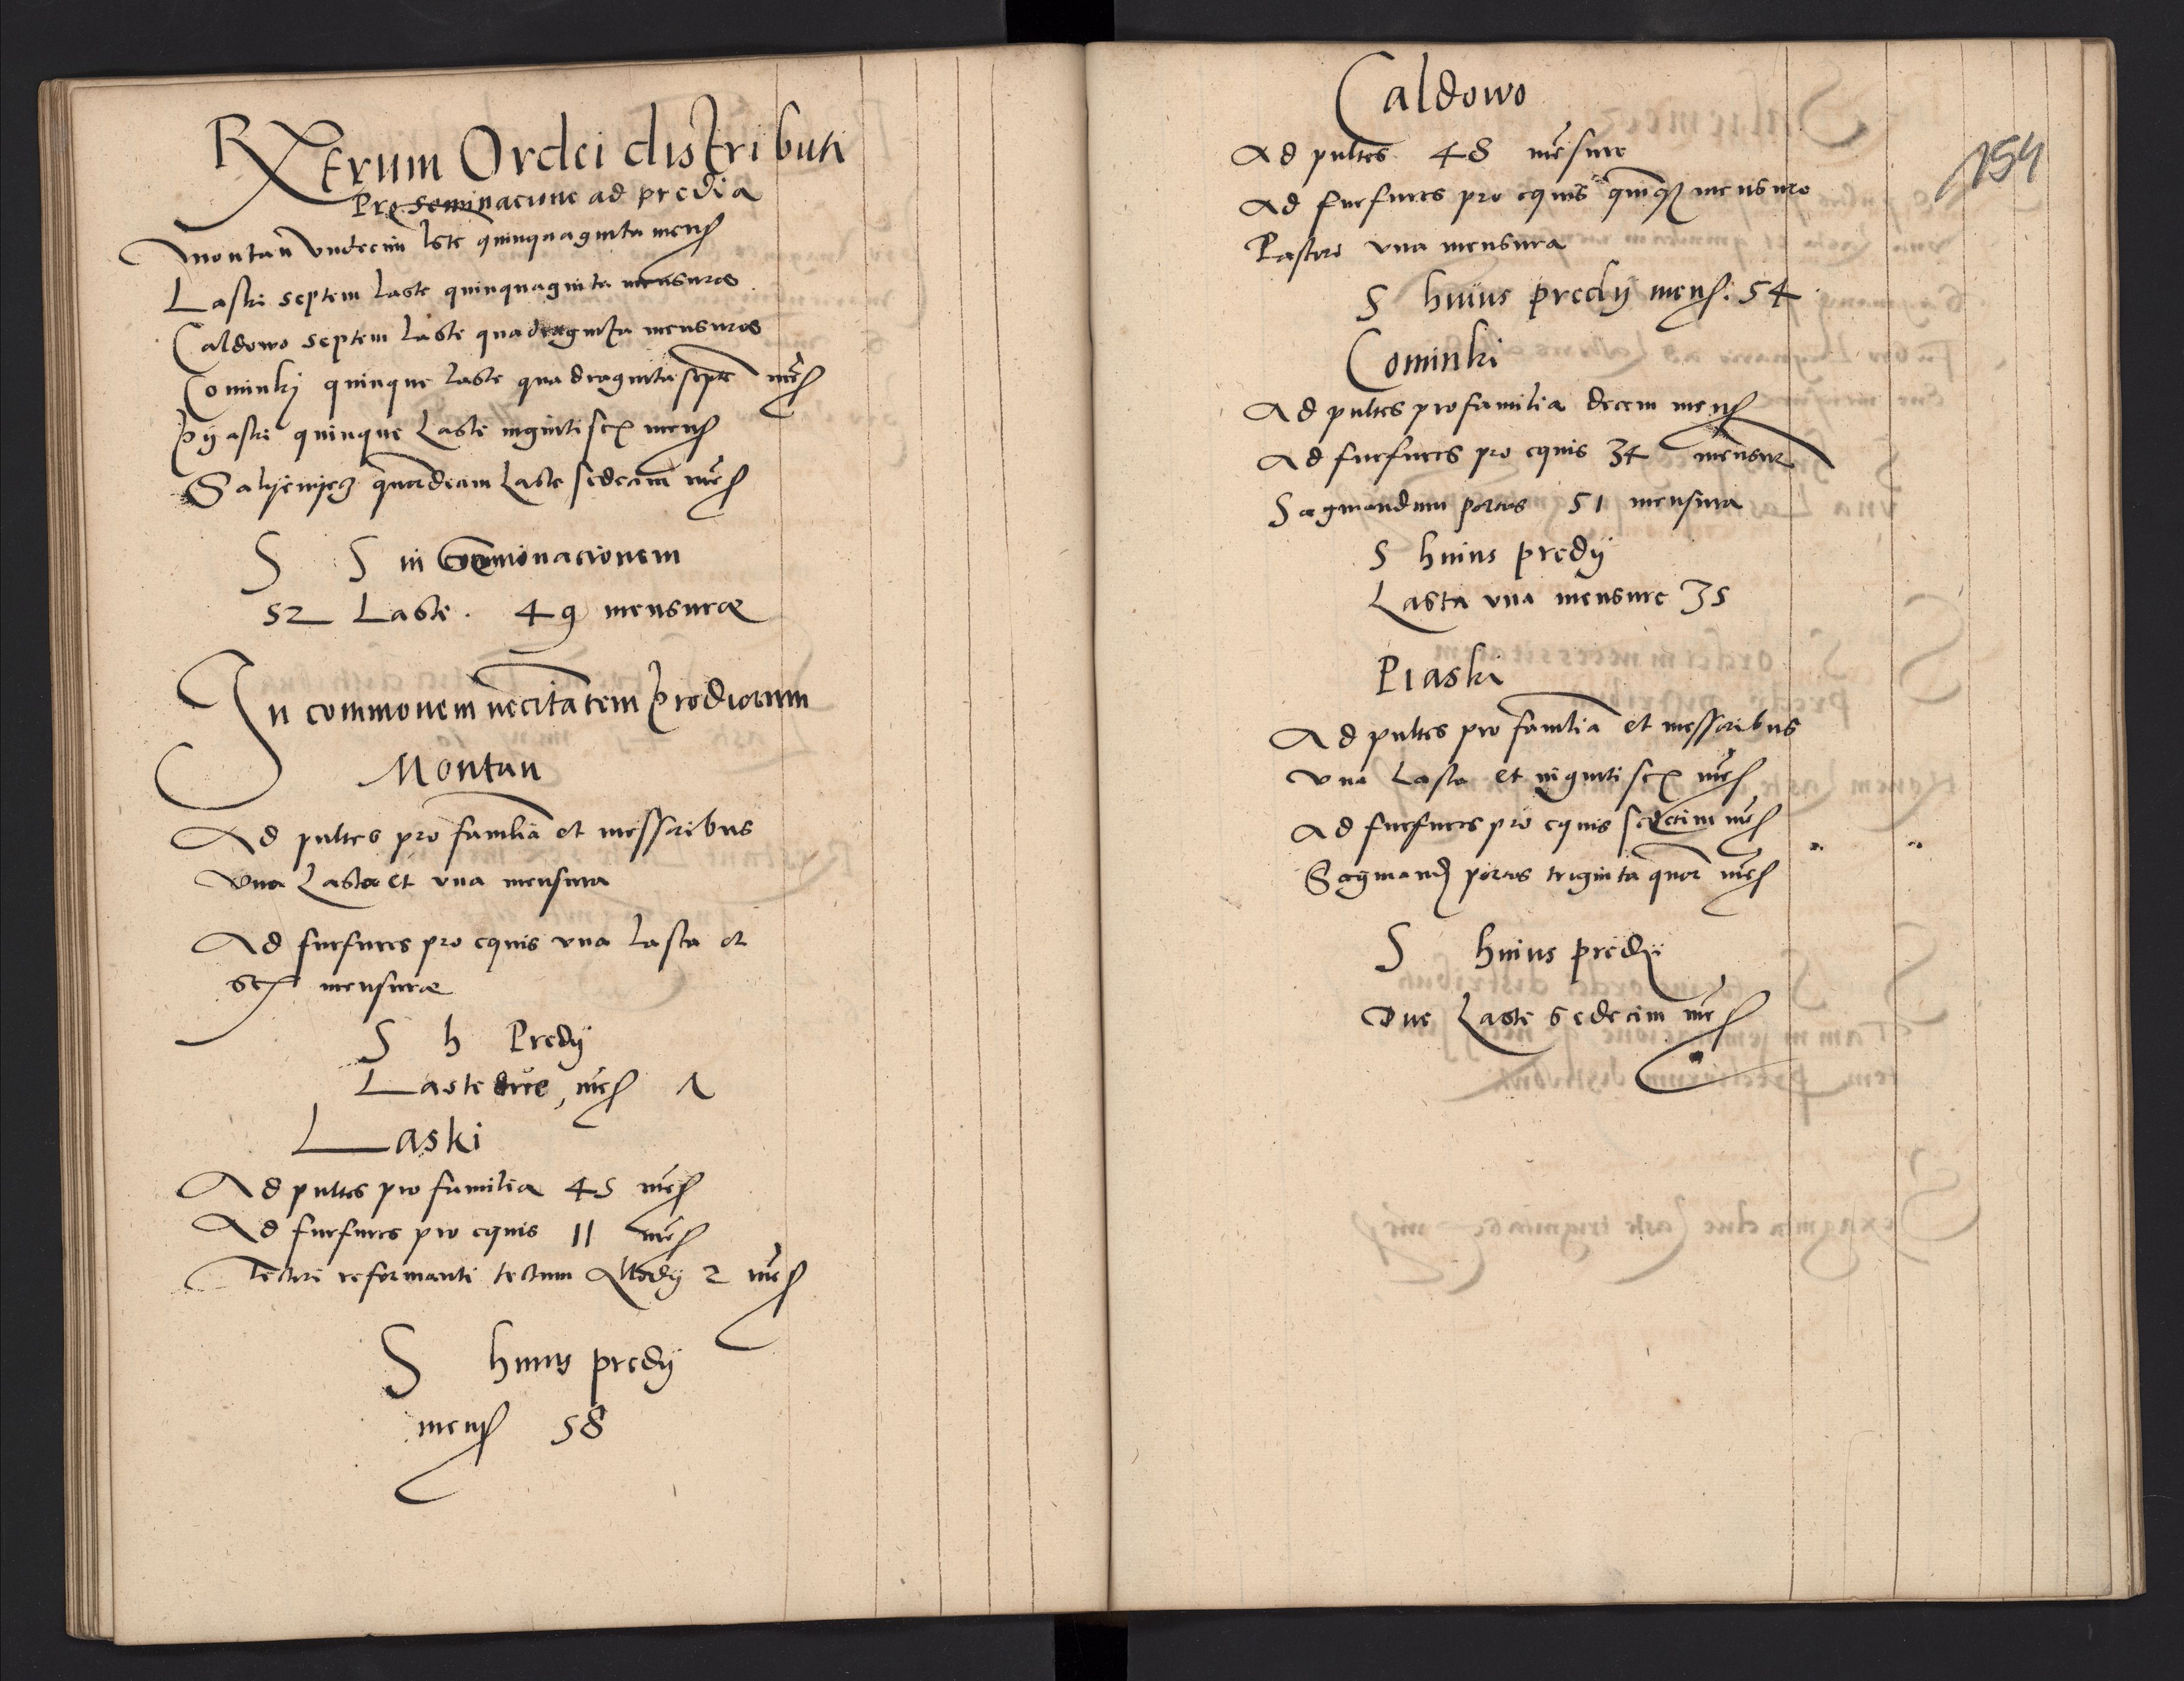 RXerum Ordei distributi
Pro seminacione ad predia
Montan vndecim lste quinquaginta mens
Laski septem laste quinquaginta mensuras
Caldowo septem laste quadraginta mensuras
Cominkj quinque laste quadraginta septe mes
Pyaski quinque laste viginti sex mens
quatrdecim laste sedecim mes
S S in seminacionem
52 Laste. 49 mensuræ
In commonem necitatem prediorum
Montan
Ad pultes pro familia et messoribus
vna Lasta et vna mensura
Ad furfures pro equis vna lasta et
sex mensuræ
S h Predij
Laste due, mes 1
Laski
Ad pultes pro familia 45 mes
Ad furfures pro equis 11 mes
Tectori reformanti tectum 2 mes
S huius predij
mens 58
154
Caldowo
Ad pultes 48 mesure
Ad furfures pro equis quinqz mensuro
Pastori vna mensura
S huius predij mens. 54
Cominki
Ad pultes pro familia decem mens
Ad furfures pro equis 34 mensur
Sagmandum porcos 51 mensura
S huius predij
Lasta vna mensure 35
Piaski
Ad pultes pro familia et messoribus
vna Lasta et viginti sex mes
Ad furfures pro equis sedecim mes
Sagmand porcos triginta quor mes
S huius predij
Due Laste sedecim mes